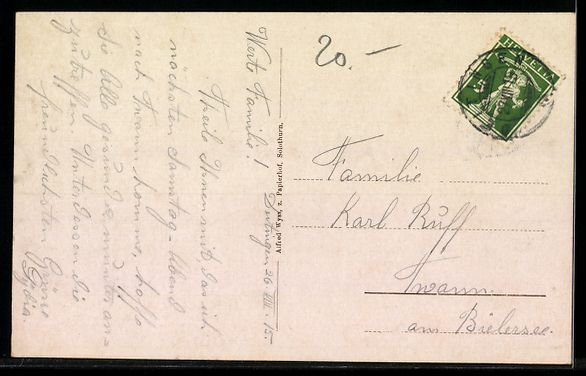 Werte Familie!
Theile Ihnen mit das ich
nächsten Samstag-Abend
nach Twann komme, hoffe
Sie Alle gesund & munter an-
zutreffen. Unterdessen die
freundlichsten Grüsse
Lydia.
26. VIII. 15.
Alfred Wyss, z. Papierhof, Solothurn.
20.-
HELVETIA
5
Familie
Karl Ruff
Twann.
am Bielersee.